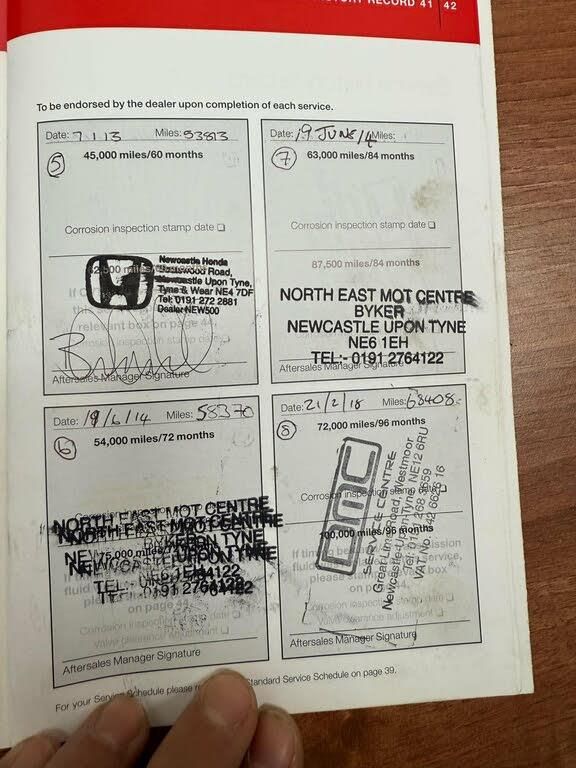 RECORD 41 42
To be endorsed by the dealer upon completion of each service.
Date: 7 1 13 Miles: 53813
5
45,000 miles/60 months
Corrosion inspection stamp date
Newcastle Honda
Road,
Newcastle Upon Tyne,
Tyne & Wear NE4 7DF
Tel: 0191 272 2881
Dealer NEW500
Aftersales Manager Signature
Date: 19 JUNE 14 Miles:
7
63,000 miles/84 months
Corrosion inspection stamp date
87,500 miles/84 months
NORTH EAST MOT CENTRE
BYKER
NEWCASTLE UPON TYNE
NE6 1EH
TEL:- 0191 2764122
Aftersales Manager Signature
Date: 19/6/14 Miles: 58370
6
54,000 miles/72 months
NORTH EAST MOT CENTRE
NORTH EAST MOT CENTRE
75,000 miles
TEL:-
TEL:- 0191 2764122
Corrosion inspection stamp date
Valve clearance adjustment
Aftersales Manager Signature
Date: 21/2/18 Miles: 68408
8
72,000 miles/96 months
Corrosion inspection stamp date
100,000 miles/96 months
SERVICE CENTRE
Great Lime Road, Westmoor
Newcastle-Upon-Tyne, NE12 6RU
Tel: 0191 268
VAT No.
Corrosion inspection stamp date
Valve clearance adjustment
Aftersales Manager Signature
For your Service Schedule please Standard Service Schedule on page 39.